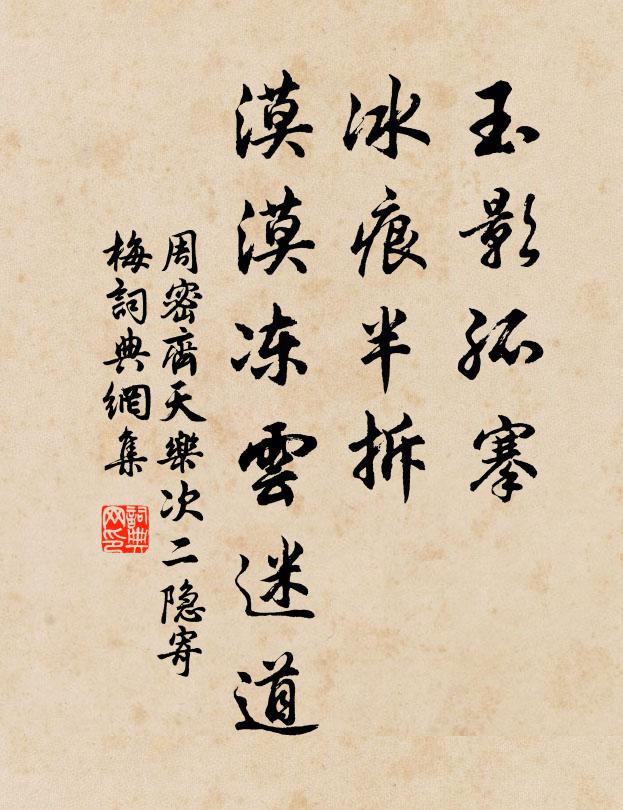 玉影孤搴
冰痕半拆
漠漠冻雲迷道
周密齊天樂次二隐寄
梅詞典網集
詞典
网印